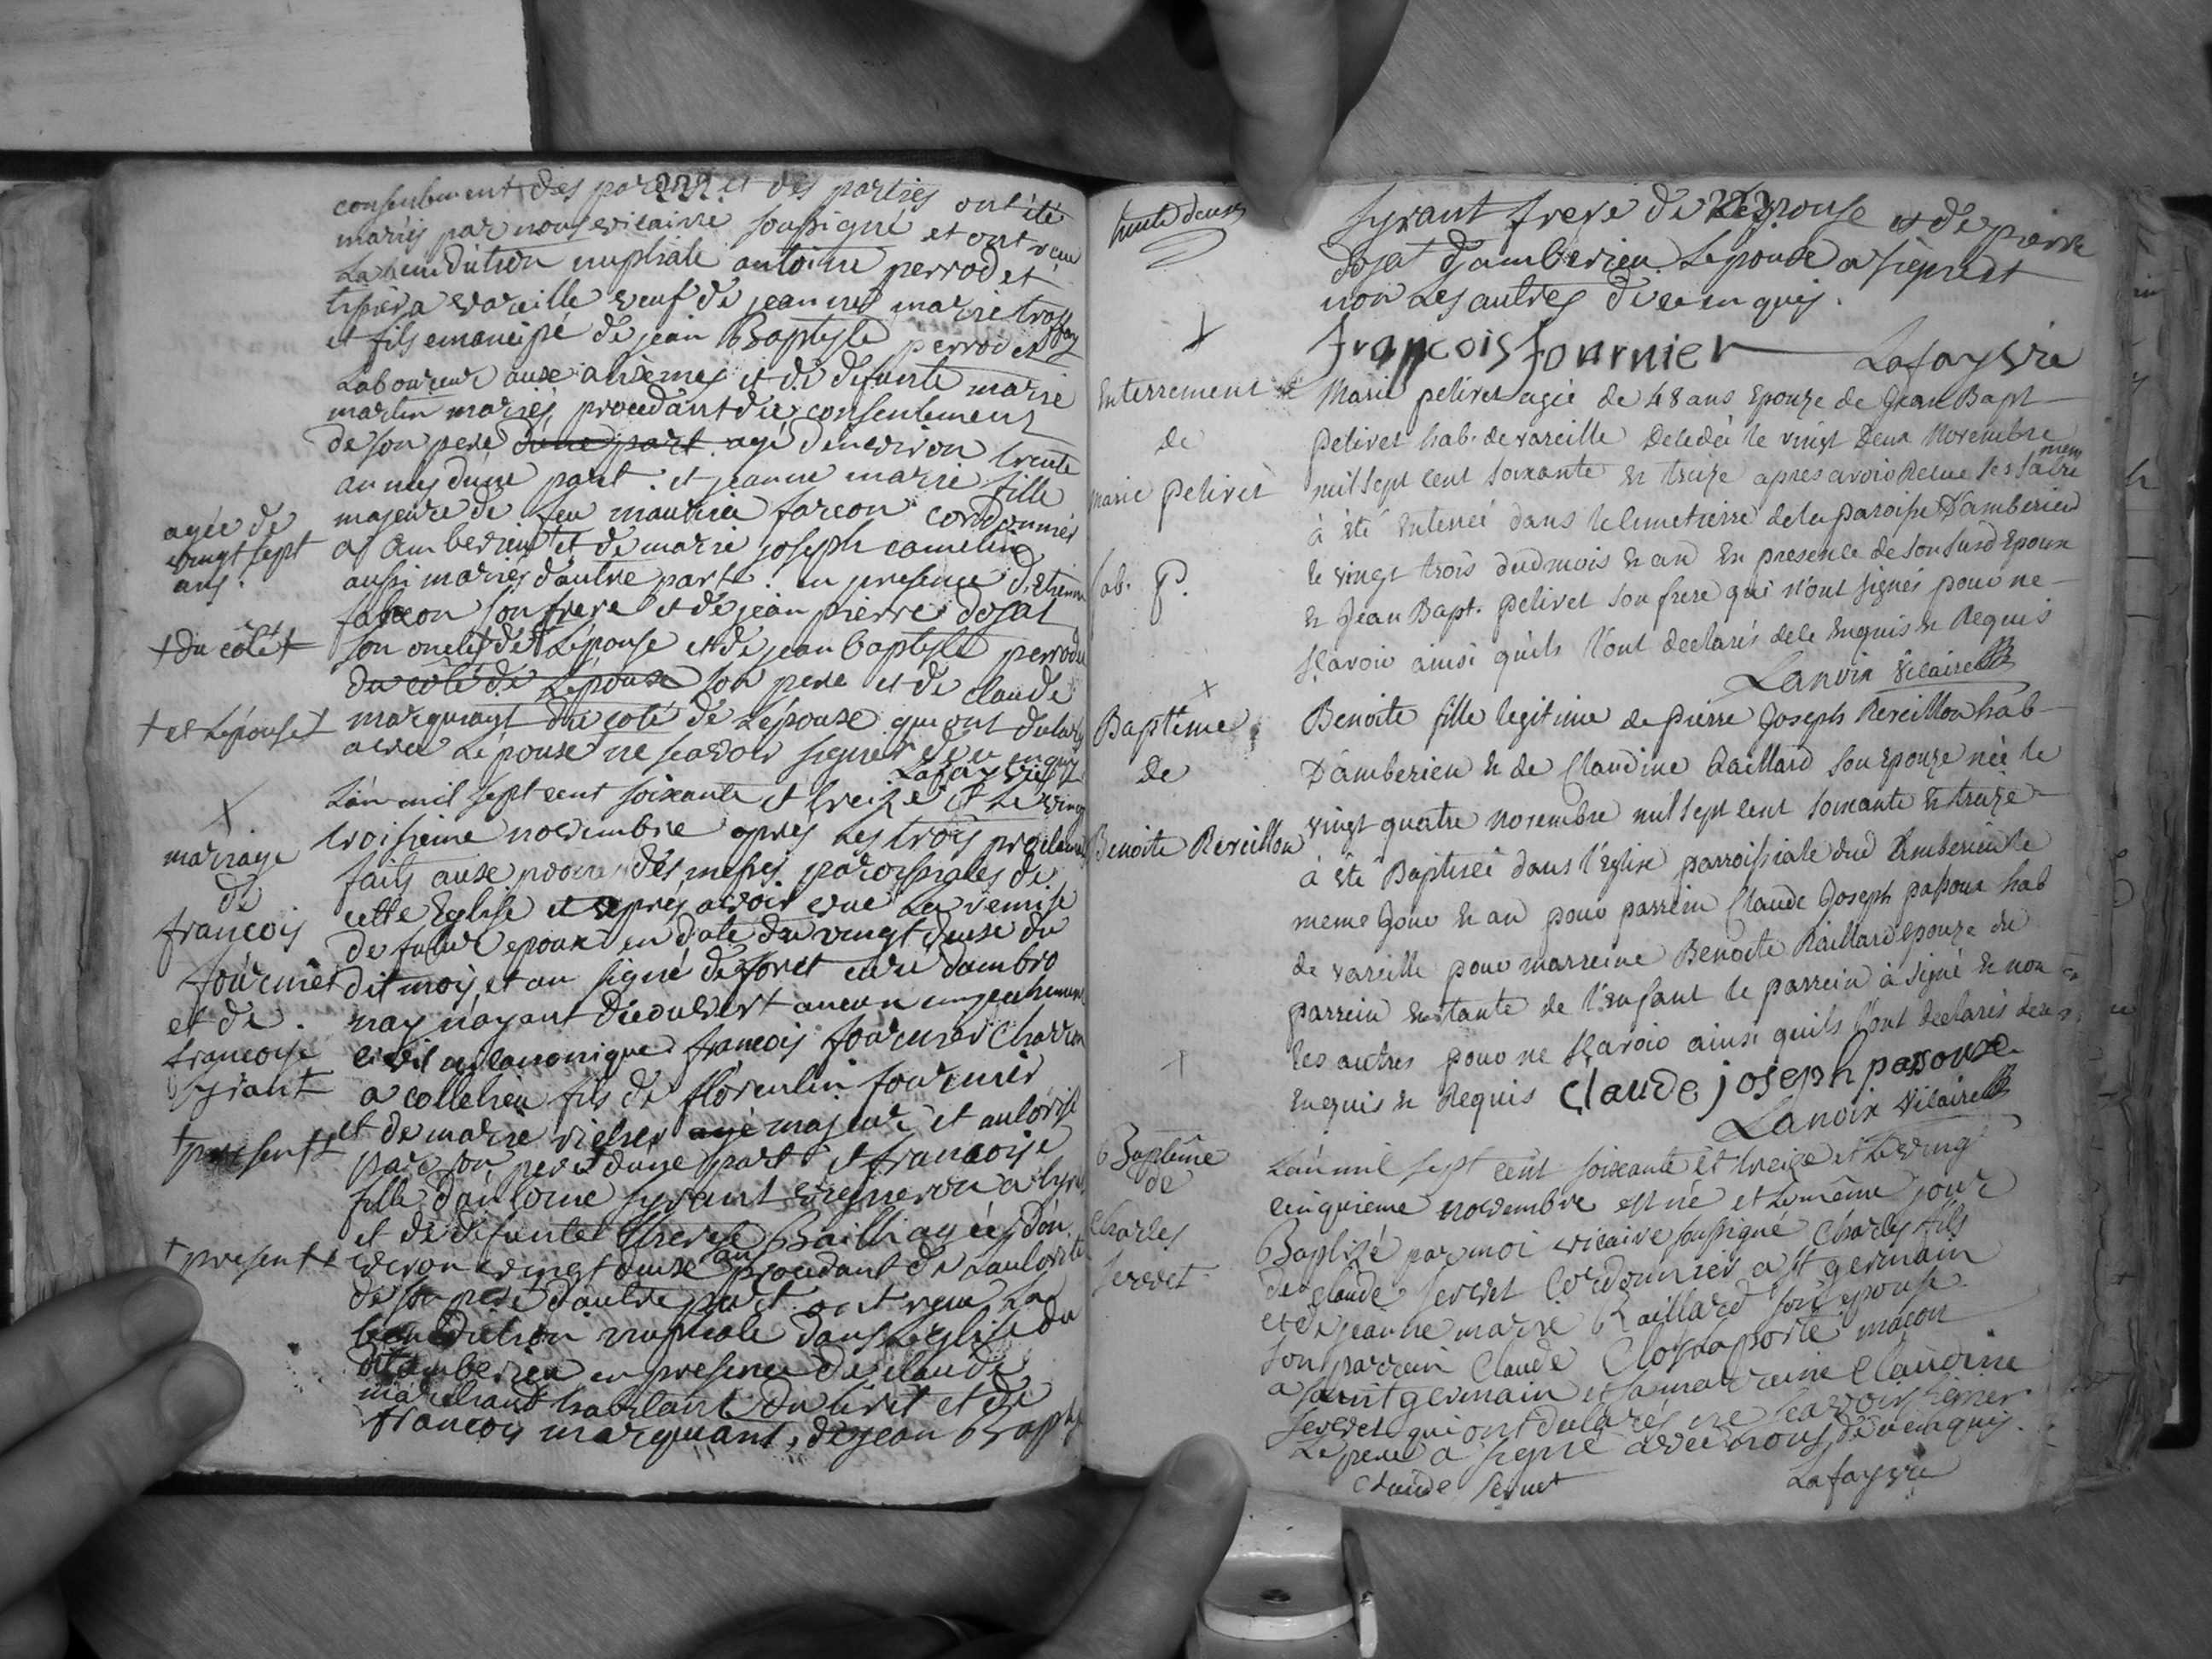 222.
consentement des parents et des parties ont été
mariés par nous vicaire soussigné et ont reçu
La benediction nuptiale antoine perrodet
a vareille veuf de jeanne marie
et fils emancipé de jean Baptiste perrodet
Laboureur aux alixemes et de defunte marie
martin mariés, procedant du consentement
de son pere d'une part agé d'environ trente
années d'une part. et jeanne marie fille
majeure de feu maurice farcon cordonnier
a amberieu et de marie joseph camelin
aussi mariés d'autre part. en presence d'etienne
farcon son frere et de jean pierre dojat
son oncle de L'épouse et de jean baptiste perrodet
du côté de L'époux son pere et de claude
marquant du coté de L'époux qui ont declaré
avec L'épouse ne scavoir signer de ce enquis
Lafayvre
agée de
vingt sept
ans.
+ du côté +
+ et L'épouse +
mariage
de
francois
fournier
et de
francoise
syrant
+ present +
+ present +
L'an mil sept cent soixante et treize et le vingt
troisieme novembre après les trois proclamations
faits aux prones des messes paroissiales de
cette Eglise et après avoir vue La remise
de futur epoux en date du vingt deux du
dit mois et an signé deforet curé dambro
nay n'ayant découvert aucun empechement
civil ni canonique francois fournier charron
a fils de florentin fournier
et de marie agé majeur et autorisé
par son pere d'une part et francoise
fille d'antoine syrant vigneron a
et de defunte therese Bailli agée d'en
viron vingt deux ans procedant de L'autorité
de son pere d'autre part ont reçu La
benediction nuptiale dans L'eglise du
dit amberieu en presence de claude
marchant habitant du tiret et de
francois marquant, de jean Bapte
trente deux
223
syrant frere de L'epouse et de pierre
dojat d'amberieu. L'epoux a signé et
non Les autres de ce enquis.
francois fournier Lafayvre
Enterrement
de
Marie Pelivet
hab. P.
Marie pelivet agée de 48 ans Epouze de Jean Bapt
Pelivet hab. de vareille Decedée le vingt Deux Novembre
mil sept cent soixante et treize apres avoir Recue ses sacre
mens
à été enterrée dans le cimetierre de la paroisse D'amberieu
le vingt trois dud mois et an En presence de son susd Epoux
et Jean Bapt. Pelivet son frere qui n'ont signés pour ne
sçavoir ainsi qu'ils l'ont declarés de ce Enquis et Requis
Lanoix Vicaire
Baptême
de
Benoite Reveillon
Benoite fille legitime de Pierre Joseph Reveillon hab
D'amberieu et de Claudine Raillard son Epouze née le
vingt quatre novembre mil sept cent soixante et treize
à été Baptisée dans l'Eglise parroissiale dud Amberieu le
meme Jour et an pour parrein Claude Joseph passoux hab
de vareille pour marreine Benoite Raillard epouze du
parrein et tante de l'enfant le parrein à signé et non
les autres pour ne sçavoir ainsi qu'ils l'ont declarés de ce
Enquis et Requis Claude joseph passoux
Lanoix Vicaire
Baptême
de
Charles
servet
L'an mil sept cent soixante et treize et Le vingt
cinquieme novembre est né et Le même jour
Baptisé par moi vicaire soussigné Charles fils
de claude servet Cordonnier a st germain
et de jeanne marie Raillard son epouse
son parrein Claude Clos Laporte maçon
a saint germain et sa marreine Claudine
servet qui ont declarés ne scavoir signer
Le pere a signé avec nous de ce enquis.
Claude servet Lafayvre